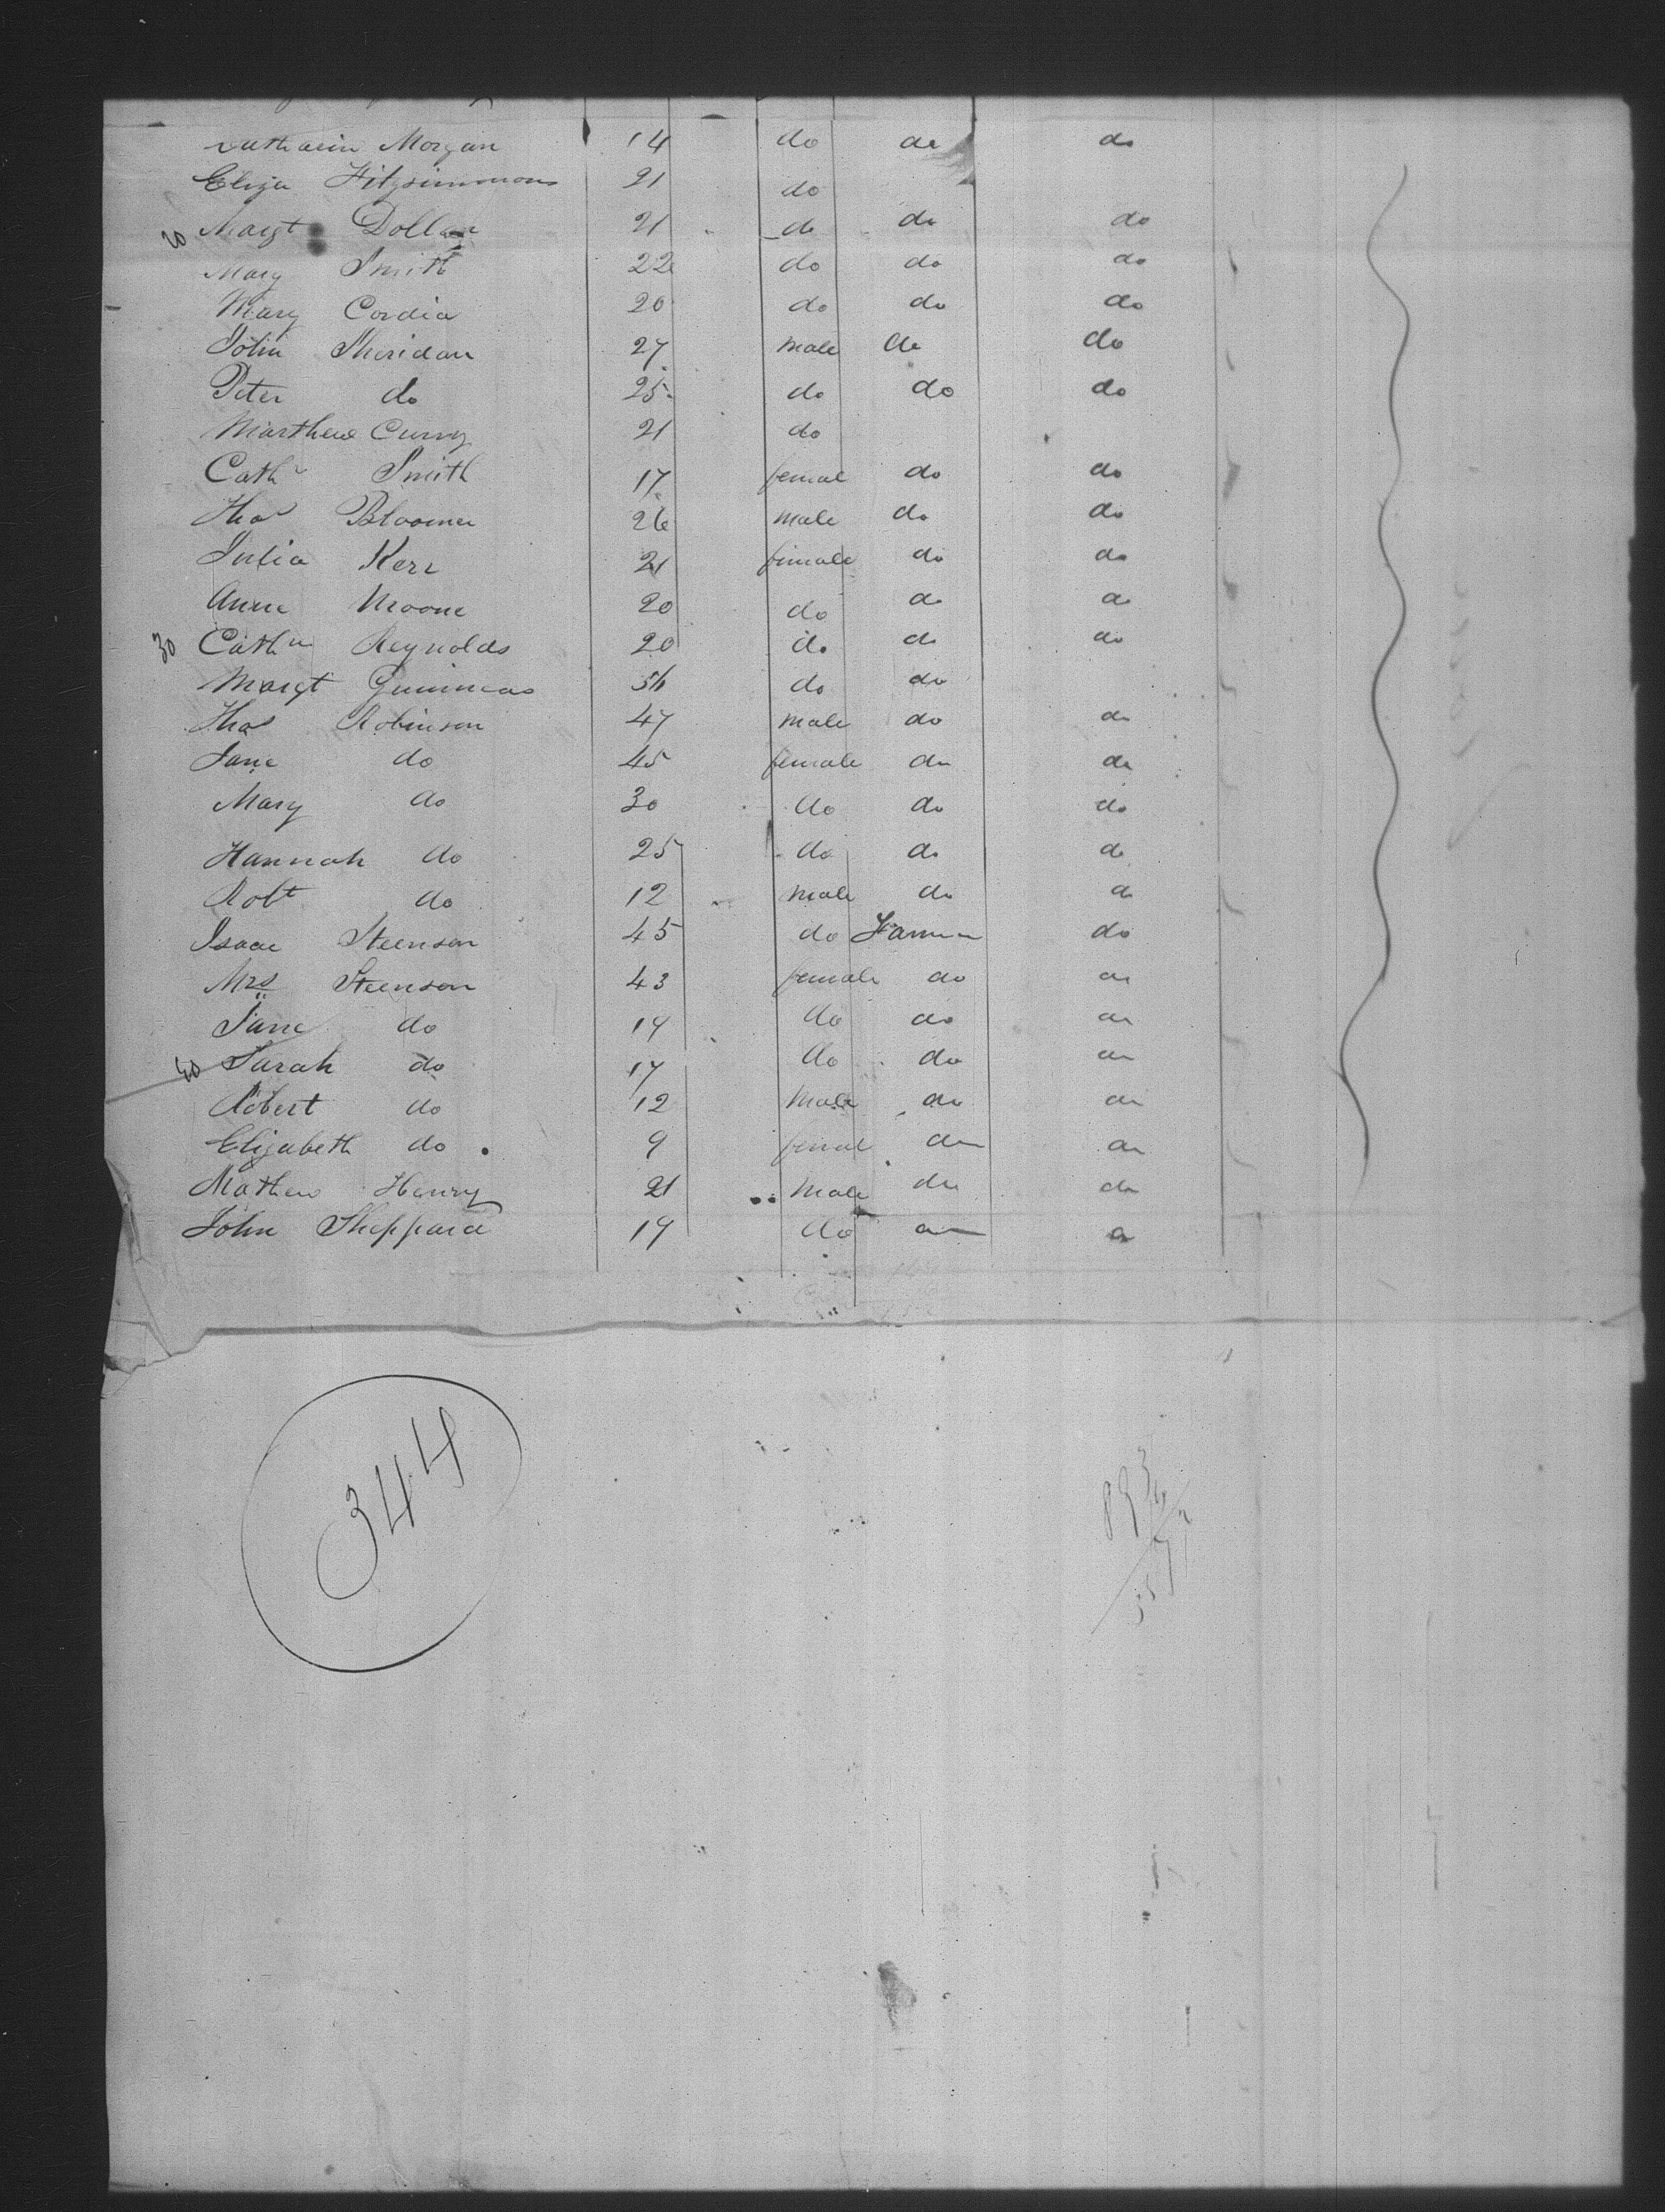 Catharin Morgan 14 do do do
Eliza Fitzsimmons 21 do
20 Margt Dollan 21 do do do
Mary Smith 22 do do do
Mary Cordia 20 do do do
John Sheridan 27 male do do
Peter do 25 do do do
Marthew Curry 21 do
Cath Smith 17 femal do do
Thos Bloomer 26 male do do
Julia Kerr 21 female do do
Anne Moone 20 do do do
30 Cathn Reynolds 20 do do do
Margt do do
Thos Robinson 47 male do do
Jane do 45 female do do
Mary do 30 do do do
Hannah do 25 do do do
Robt do 12 male do do
Isaac Steenson 45 do Farmer do
Mrs Steenson 43 female do do
Jane do 19 do do do
40 Sarah do 17 do do do
Robert do 12 Male do do
Elizabeth do 9 femal do do
Mathew Henry 21 Male do do
John Sheppard 19 do do do
344